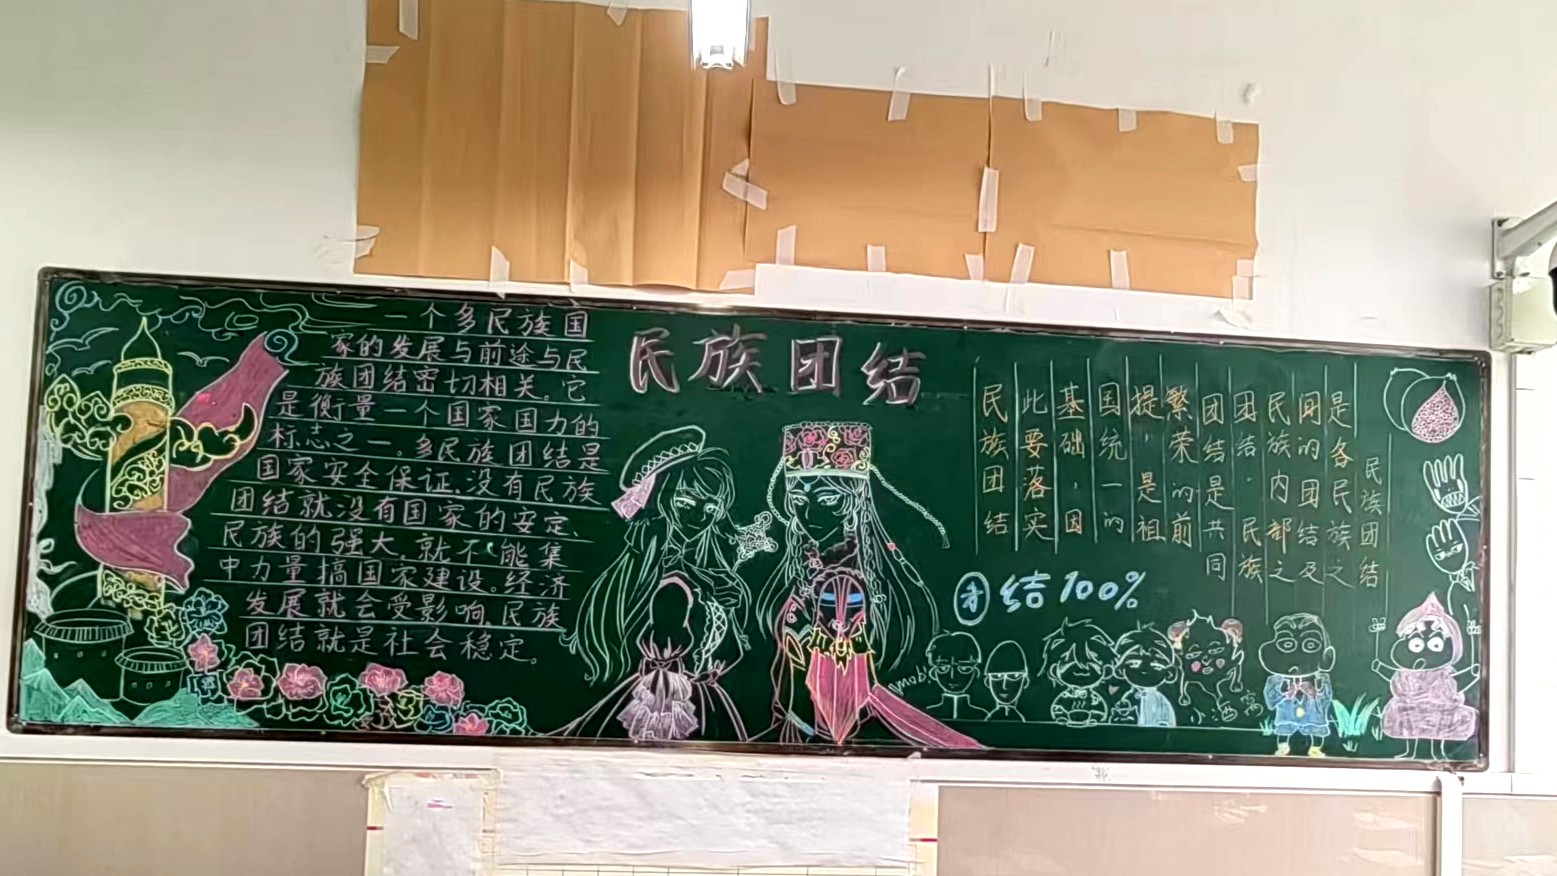 民族团结
一个多民族国
家的发展与前途与民
族团结密切相关。它
是衡量一个国家国力的
标志之一。多民族团结是
国家安全保证、没有民族
团结就没有国家的安定、
民族的强大,就不能集
中力量搞国家建设。经济
发展就会受影响,民族
团结就是社会稳定。
民族团结
是各民族之
间的团结及
民族内部之
团结。民族
团结是共同
繁荣的前
提,是祖
国统一的
基础,因
此要落实
民族团结
团结100%
mob